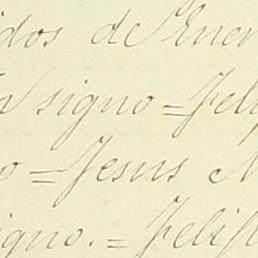 idos de Ener
signo = Feli
o = Jesus M
igno. = Felip